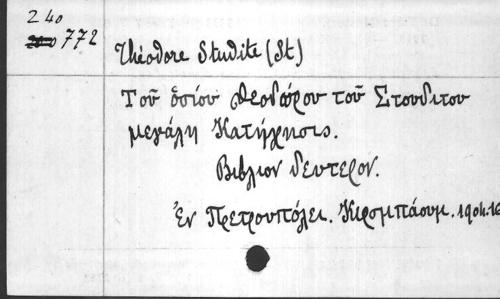 240
772
Théodore Studite (St)
Τοῦ ὁσίου Θεοδώρου τοῦ Στουδίτου
μεγάλη Κατήχησις.
Βιβλιον δευτερον.
Ἐν Πρετρουπόλει. Κιρσμπάουμ. 1904.16